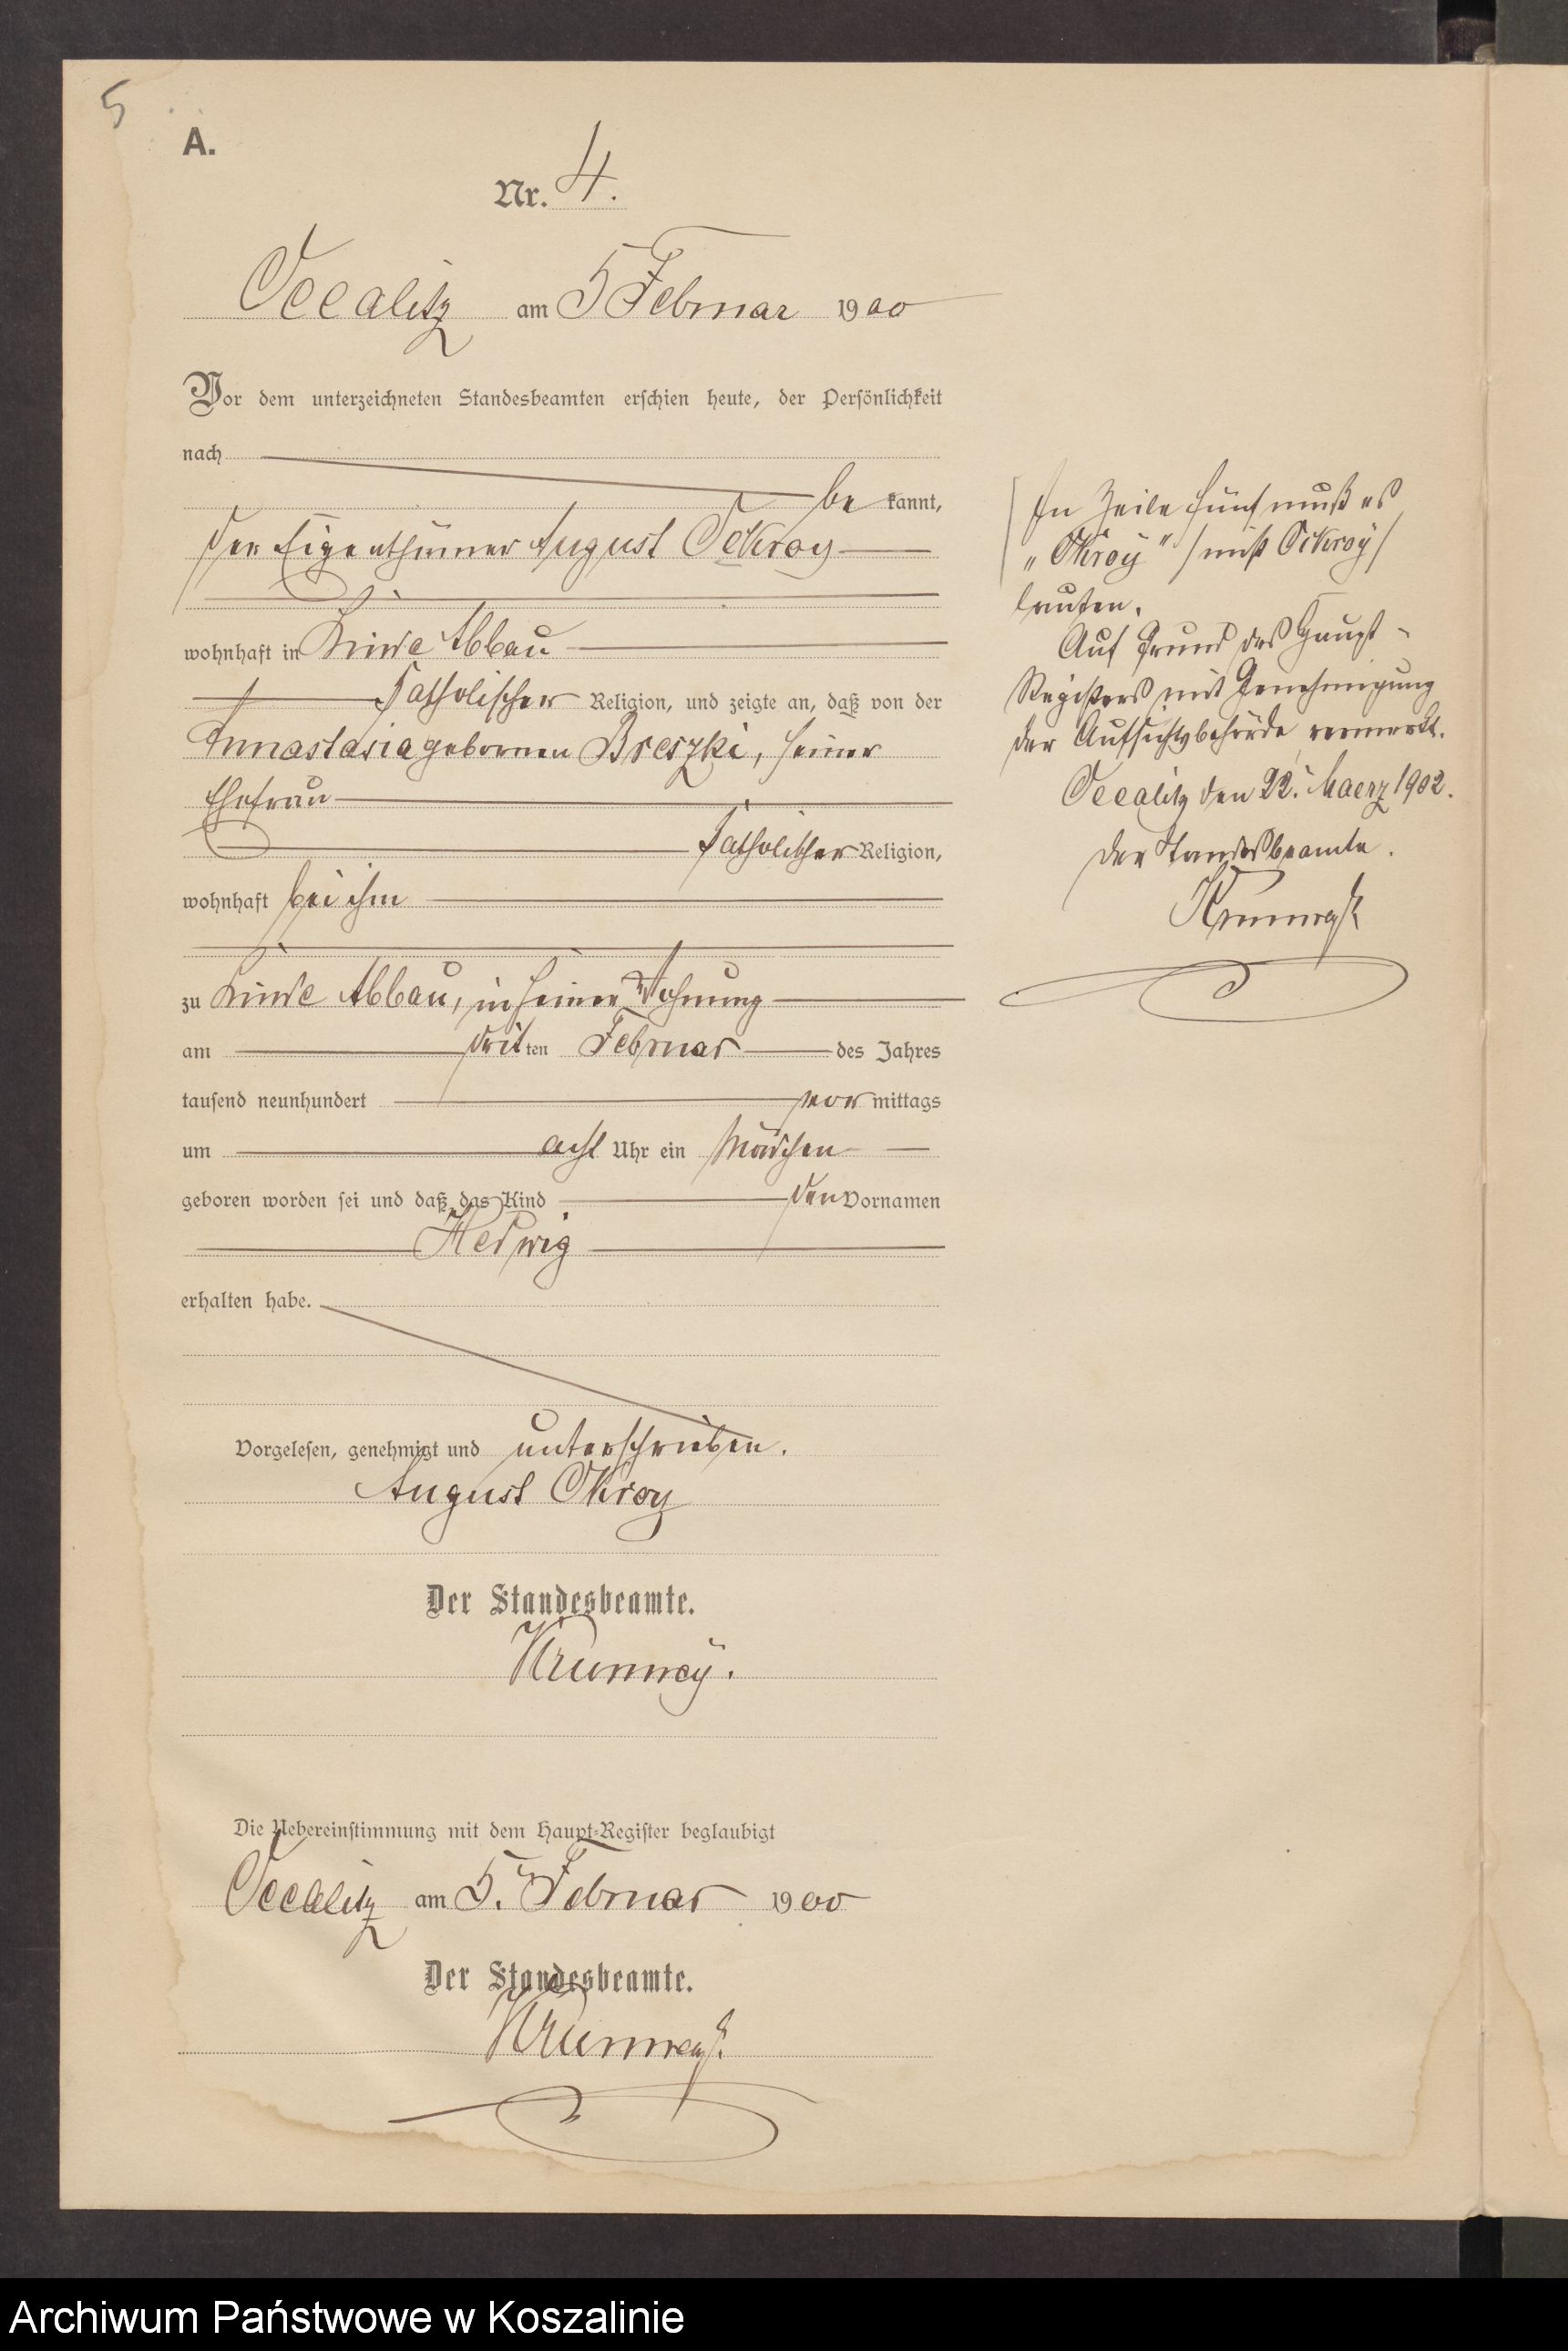 5
A.
Nr. 4.
Occalitz am 5 Februar 1900
Vor dem unterzeichneten Standesbeamten erschien heute, der Persönlichkeit
nach
be kannt,
der Eigenthümer August Ockroy
wohnhaft in Linde Abbau
katholischer Religion, und zeigte an, daß von der
Annastasia gebornen Breszki, seiner
Ehefrau
katholischer Religion,
wohnhaft bei ihm
zu Linde Abbau, in seiner Wohnung
am dritten Februar des Jahres
tausend neunhundert vor mittags
um acht Uhr ein Mädchen
geboren worden sei und daß das Kind den Vornamen
Hedwig
erhalten habe.
Vorgelesen, genehmigt und unterschrieben.
August Okroy
Der Standesbeamte.
Krummrey.
Die Uebereinstimmung mit dem Haupt-Register beglaubigt
Occalitz am 5. Februar 1900
Der Standesbeamte.
In Zeile fünf muß es
„Okroÿ" / nicht Ockroÿ /
lauten.
Auf Grund des Haupt-
Registers mit Genehmigung
der Aufsichtsbehörde vermerkt.
Occalitz den 22. Maerz 1902.
Der Standesbeamte.
Archiwum Państwowe w Koszalinie